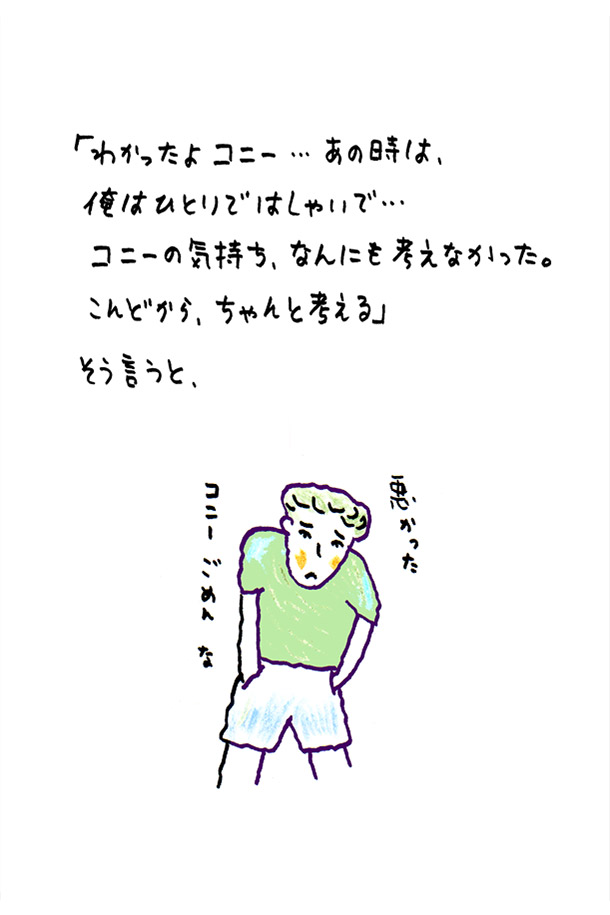 「わかったよ コニー… あの時は、
俺は ひとりで はしゃいで…
コニーの気持ち、なんにも 考えなかった。
こんどから、ちゃんと考える」
そう言うと、
悪かった
コニー ごめんな